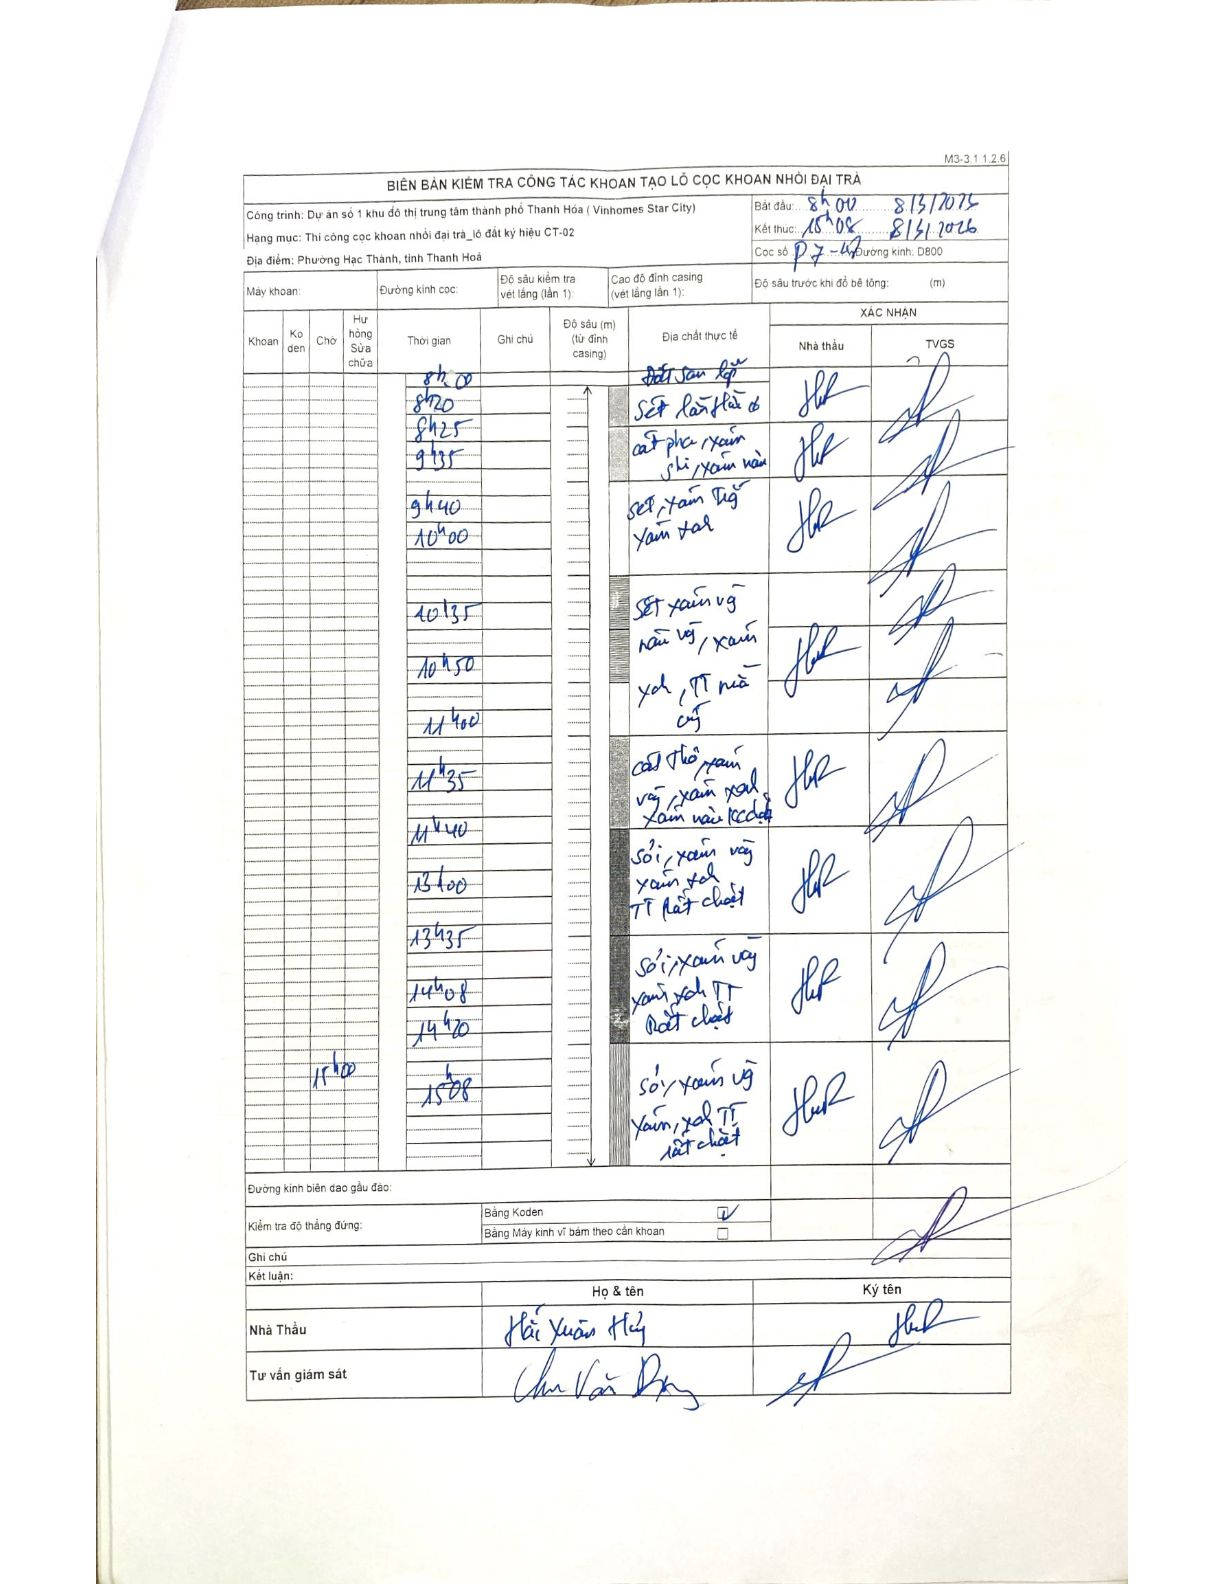 M3-3.1 1.2.6
BIÊN BẢN KIỂM TRA CÔNG TÁC KHOAN TẠO LỖ CỌC KHOAN NHỒI ĐẠI TRÀ
Công trình: Dự án số 1 khu đô thị trung tâm thành phố Thanh Hóa ( Vinhomes Star City)
Hạng mục: Thi công cọc khoan nhồi đại trà_lô đất ký hiệu CT-02
Địa điểm: Phường Hạc Thành, tỉnh Thanh Hoá
Bắt đầu: 8h00 8/3/2026
Kết thúc: 15h08 8/3/2026
Cọc số P7- Đường kính: D800
Máy khoan:
Đường kính cọc:
Độ sâu kiểm tra vét lắng (lần 1):
Cao độ đỉnh casing (vét lắng lần 1):
Độ sâu trước khi đổ bê tông: (m)
Khoan
Ko den
Chờ
Hư hỏng Sửa chữa
Thời gian
Ghi chú
Độ sâu (m) (từ đỉnh casing)
Địa chất thực tế
XÁC NHẬN
Nhà thầu
TVGS
8h00
Đất san lấp
8h20
Sét
8h25
9h35
cát pha, xám
ghi, xám nâu
9h40
sét, xám
10h00
xám xanh
10h35
Sét xám vg
nâu vg, xám
10h50
xah, TT
11h00
11h35
cát thô, xám
vàg, xám xah
xám nâu KC chặt
11h40
Sỏi, xám vàg
13h00
xám xah
TT Rất chặt
13h35
Sỏi, xám vàg
14h08
xám xah TT
Rất chặt
14h20
15h00
15h08
Sỏi, xám vg
xám, xah TT
rất chặt
Đường kính biên dao gầu đào:
Kiểm tra độ thẳng đứng:
Bằng Koden
Bằng Máy kinh vĩ bám theo cần khoan
Ghi chú
Kết luận:
Họ & tên
Ký tên
Nhà Thầu
Xuân
Tư vấn giám sát
Chu Văn